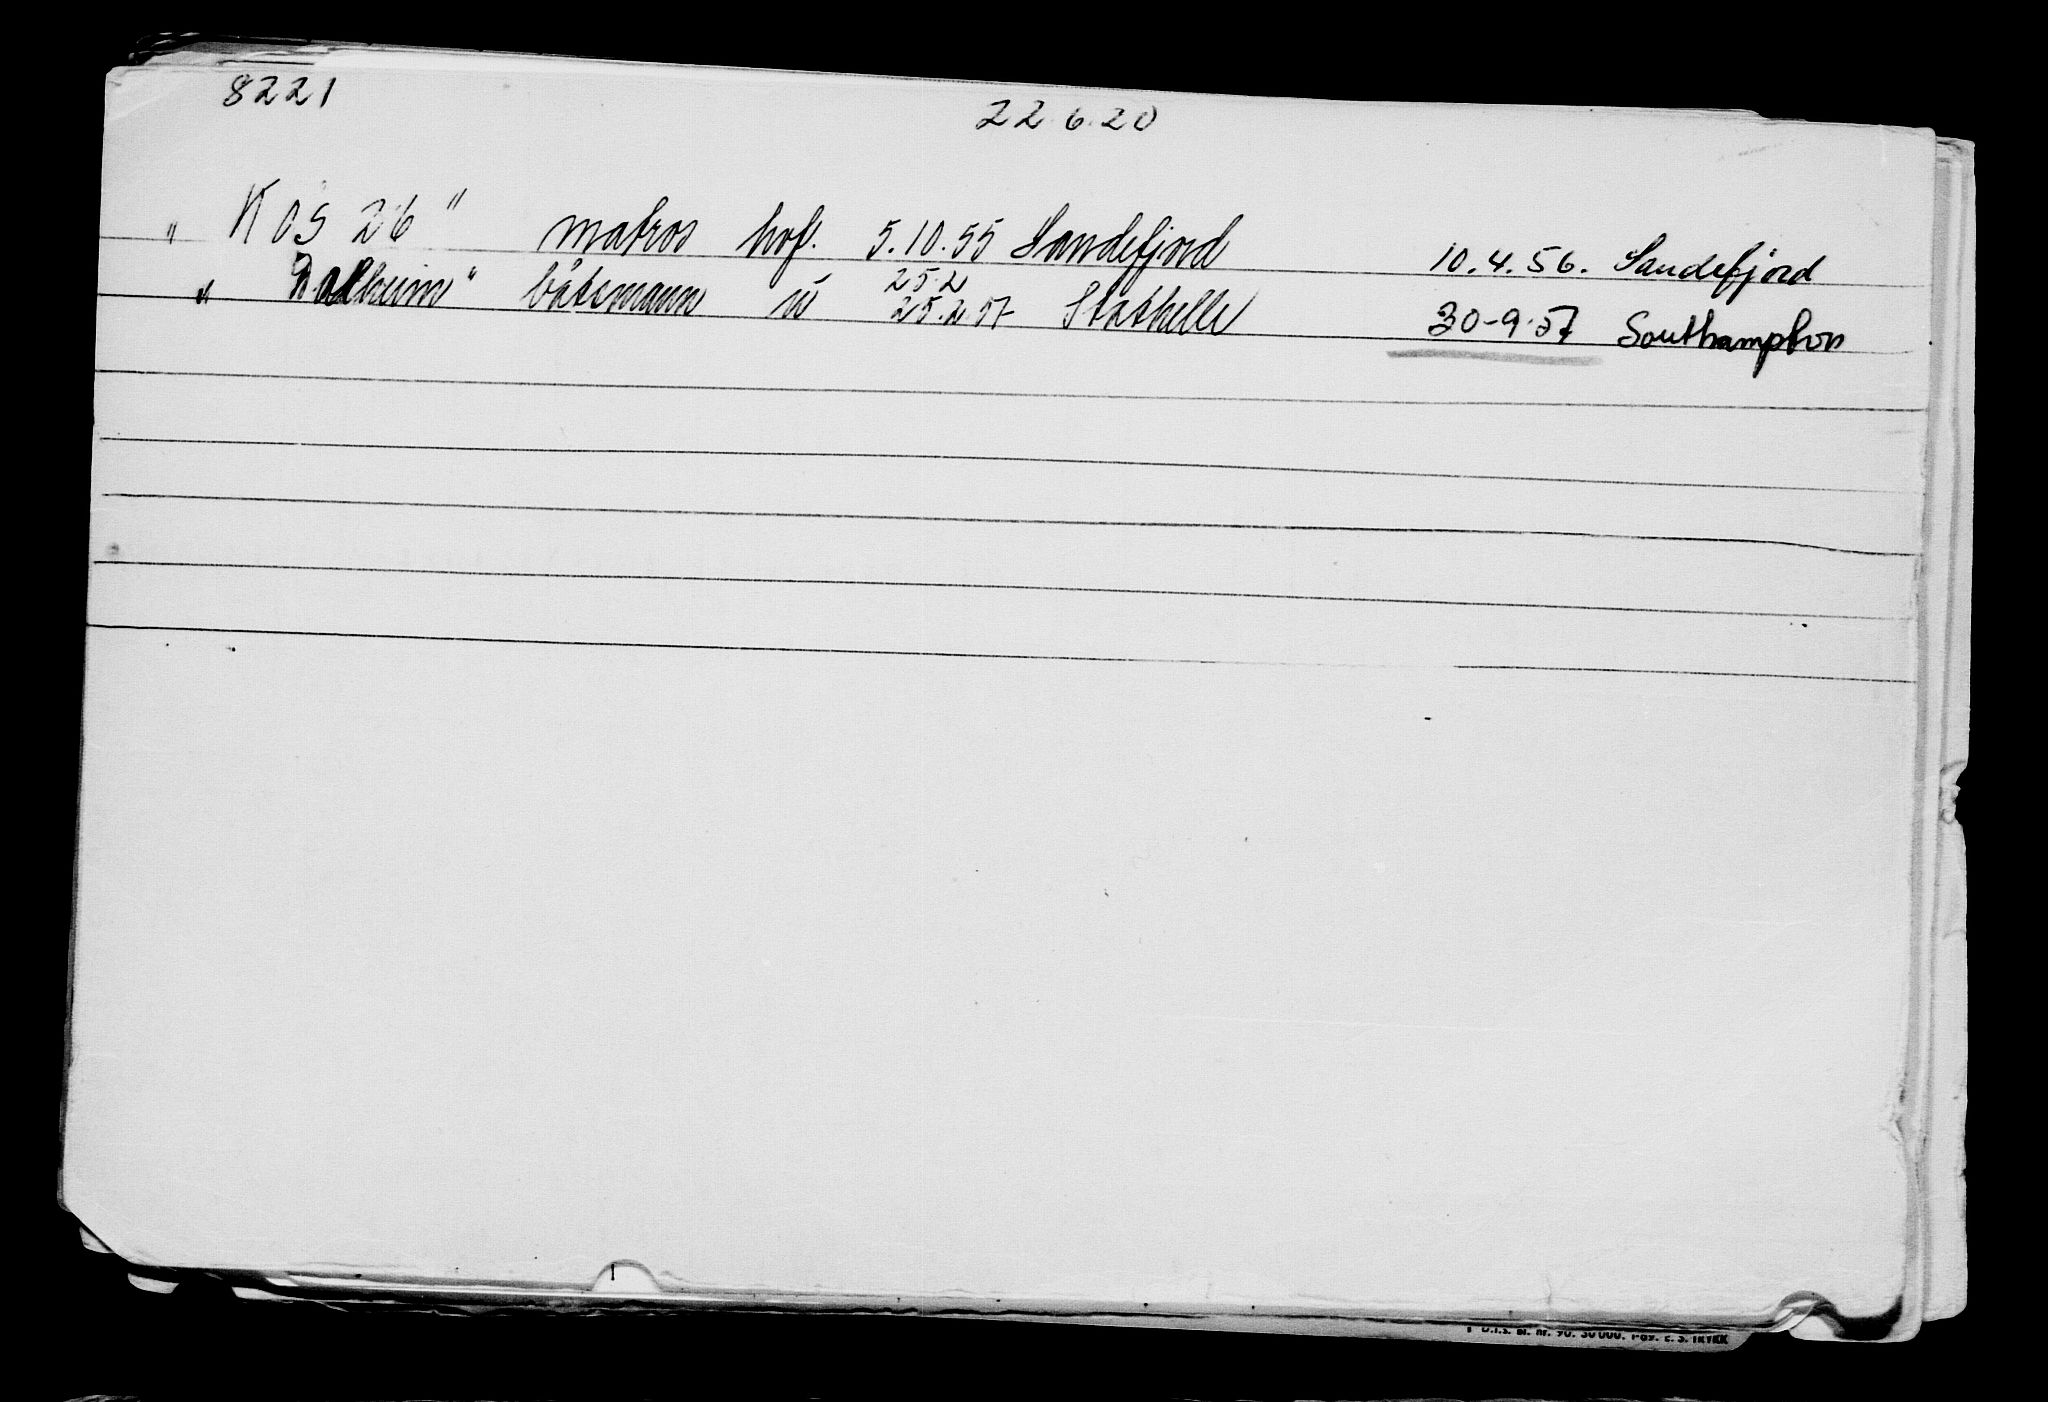 8221 22.6.20
" KOS 26 " matros hvf. 5.10.55 Sandefjord 10.4.56. Sandefjord
25.2
" Dalheim " båtsmann u 25.2.57 Stathelle 30-9-57 Southampton